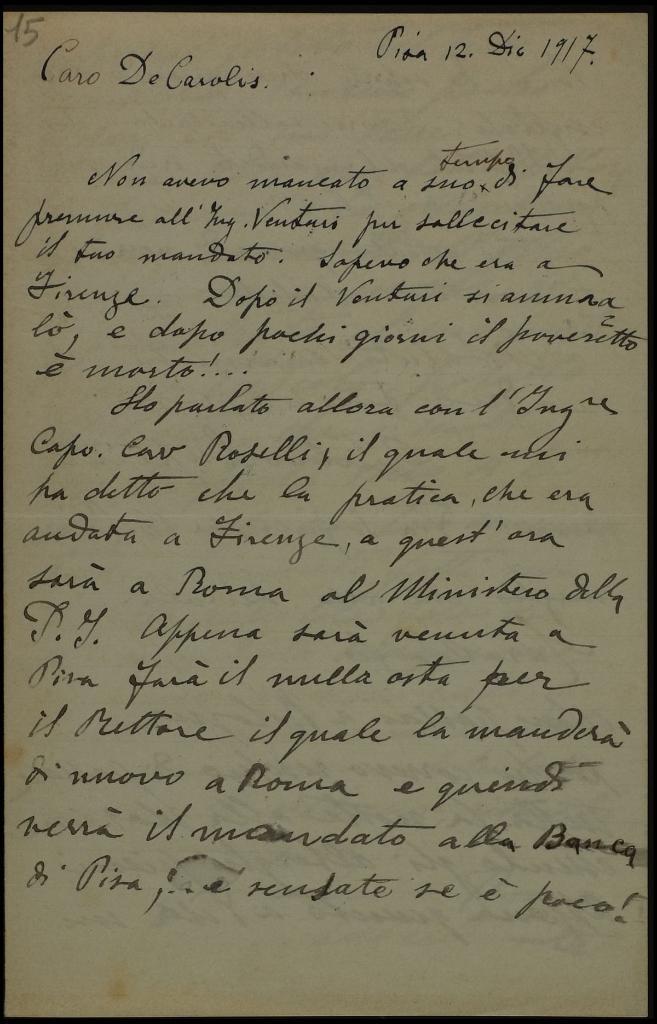 15
Pisa 12. Dic 1917.
Caro De Carolis.
Non avevo mancato a suo tempo di fare
premure all'Ing. Venturi per sollecitare
il tuo mandato. Sapevo che era a
Firenze. Dopo il Venturi si amma=
lò, e dopo pochi giorni il poveretto
è morto!...
Ho parlato allora con l'Ingre
Capo. Cav Roselli, il quale mi
ha detto che la pratica, che era
andata a Firenze, a quest'ora
sarà a Roma al Ministero della
P.I. Appena sarà venuta a
Pisa farà il nulla osta per
il Rettore il quale la manderà
di nuovo a Roma e quindi
verrà il mandato alla Banca
di Pisa,!.. e scusate se è poco!